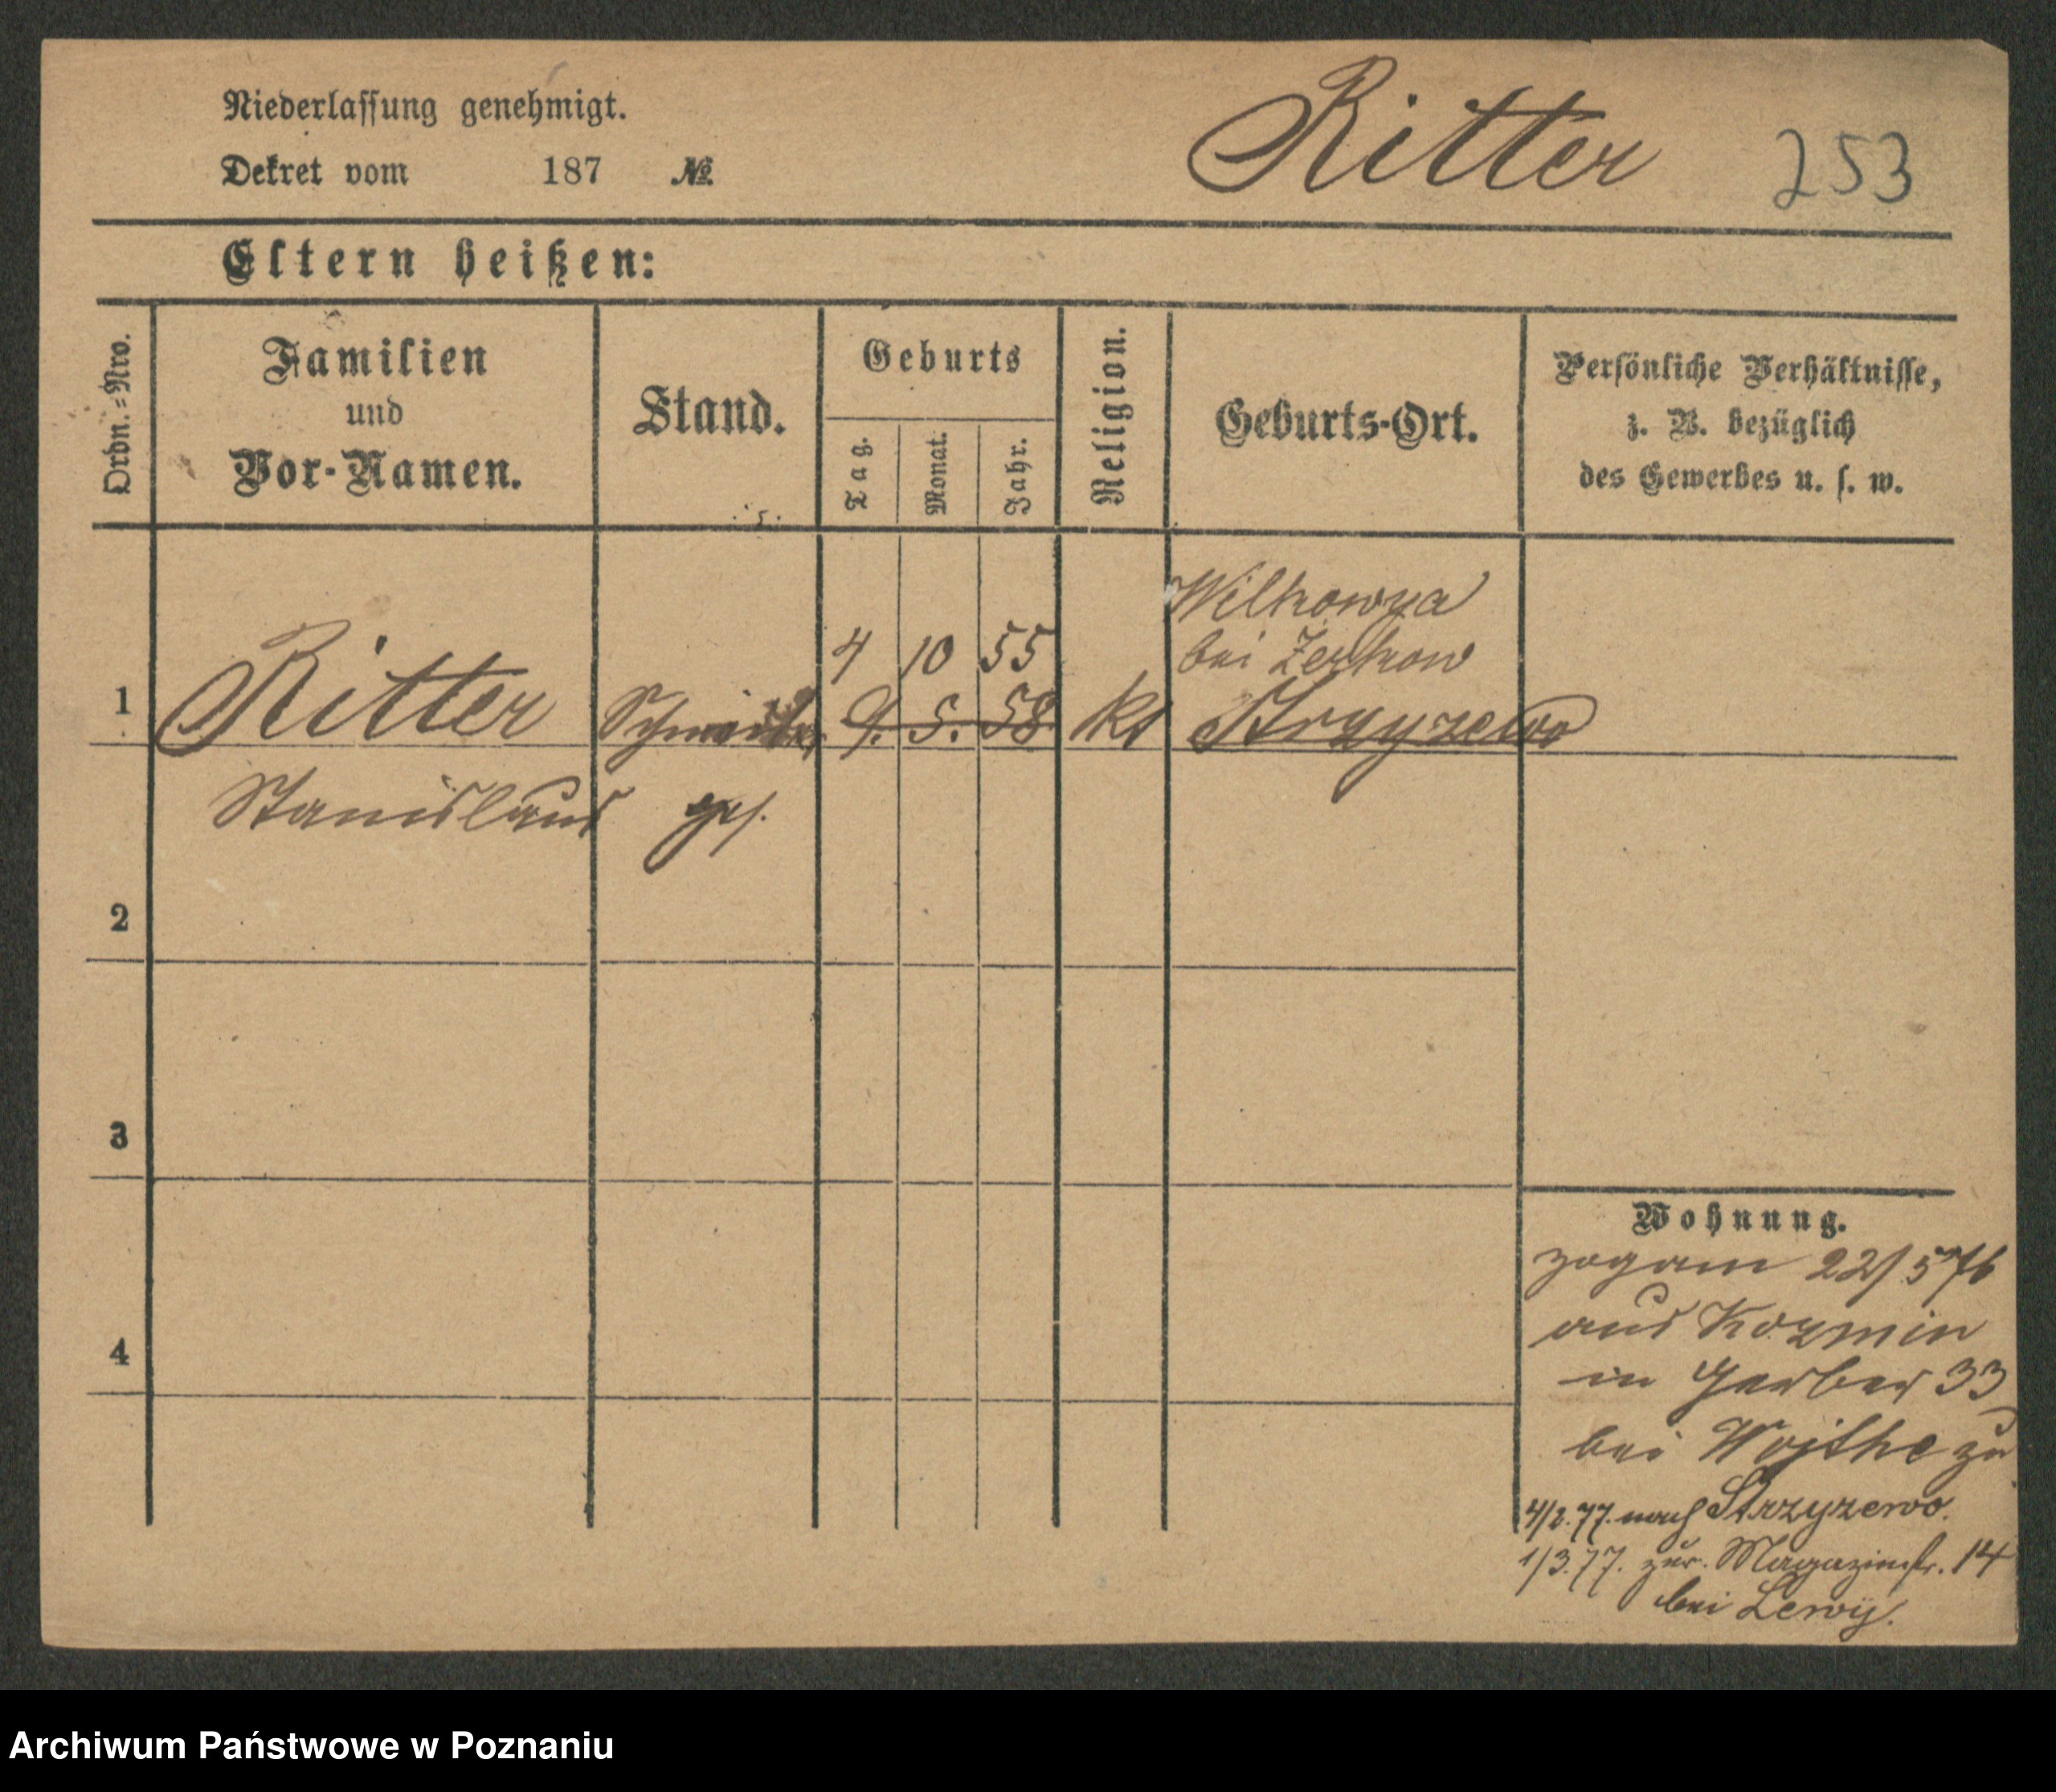 Niederlassung genehmigt.
Dekret vom 187 №
Ritter 253
Eltern heißen:
Ordn.=Nro.
Familien
und
Vor-Namen.
Stand.
Geburts
Tag.
Monat.
Jahr.
Religion.
Geburts-Ort.
Persönliche Verhältnisse,
z. B. bezüglich
des Gewerbes u. s. w.
Wilkowya
bei Zerkow
4 10 55
1 Ritter 9. 5. 58 kt Strzyzewo
Stanislaus ges.
2
3
4
Wohnung.
zog am 22/5 76
aus Kozmin
in Gerber 33
bei Woithe zu
4/2. 77. nach Strzyzewo.
1/3. 77. zur. Magazinstr. 14
bei Lewy.
Archiwum Państwowe w Poznaniu